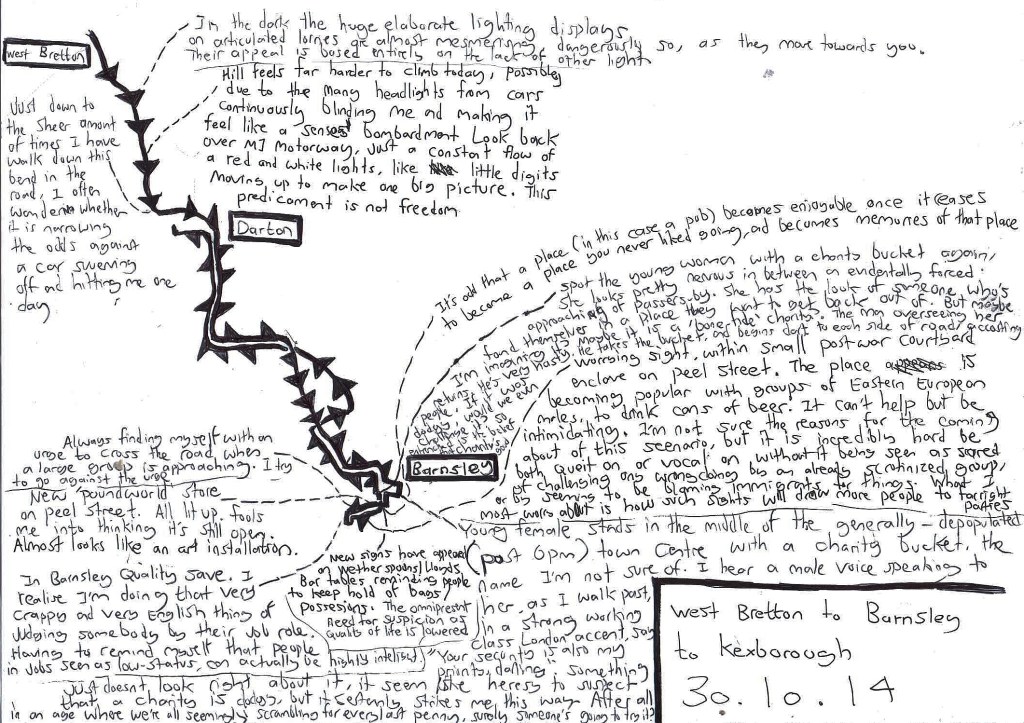 West Bretton
In the dark the huge elaborate lighting displays
on articulated lorries are almost mesmerising, dangerously so, as they move towards you.
Their appeal is based entirely on the lack of other light
Hill feels far harder to climb today, possibley
due to the many headlights from cars
continuously blinding me and making it
feel like a senses bombardment Look back
over M1 Motorway, just a constant flow of
a red and white lights, like little digits
Moving up to make one big picture. This
predicament is not freedom
Just down to
the sheer amont
of times I have
walk down this
bend in the
road, I often
wonder whether
it is narrowing
the odds against
a car swerving
off and hitting me one
day.
Darton
It's odd that a place (in this case a pub) becomes enjoyable once it ceases
to become a place you never liked going, ad becomes memories of that place
spot the young woman with a charity bucket again,
She looks pretty nervous in between an evidentally forced
approaching of passers-by. She has the look of someone who's
found themselves in a place they want to get back out of. But maybe
I'm imagining it, maybe it is a 'bone-ride' charity. The man overseeing her
returns. He's very hasty. He takes the bucket, and begins to each side of road, accosting
people. If it was
today, would we even
challenge it, so
worrying sight, within small post-war courtyard
enclave on peel street. The place is
becoming popular with groups of Eastern European
males, to drink cans of beer. It can't help but be
intimidating. I'm not sure the reasons for the coming
about of this scenario, but it is incredibly hard be
both quiet on or vocal on without it being seen as scared
of challenging any wrongdoing by an already scrutinized group,
or by seeming to be blaming immigrants for things. What I
most worry about is how such sights will draw more people to far right
parties
Barnsley
Always finding myself with an
urge to cross the road, when
a large group is approaching. I try
to go against the urge
New 'poundworld' store
on peel street. All lit up, fools
me into thinking it's still open.
Almost looks like an art installation.
In Barnsley Quality save. I
realise I'm doing that very
crappy and very English thing of
Judging somebody by their job role.
Having to remind myself that people
in jobs seen as low-status, can actually be highly intelligent
New signs have appeared
on wetherspoons/Lloyds
Bar tables reminding people
to keep hold of bags/
possesions. The omnipresent
need for suspicion as
quality of life is lowered
Young female stads in the middle of the generally-depopulated
(past 6pm) town Centre with a charity bucket, the
name I'm not sure of. I hear a male voice speaking to
her, as I walk past,
in a strong working
class London accent, say
"Your security is also my
priority, darling" something
Just doesnt look right about it, it seem like heresy to suspect
that a charity is dodgy, but it certanly strikes me this way. After all
in an age where we're all seemingly scrambling for every last penny, surely someone's going to try it?
West Bretton to Barnsley
to Kexborough
30.10.14